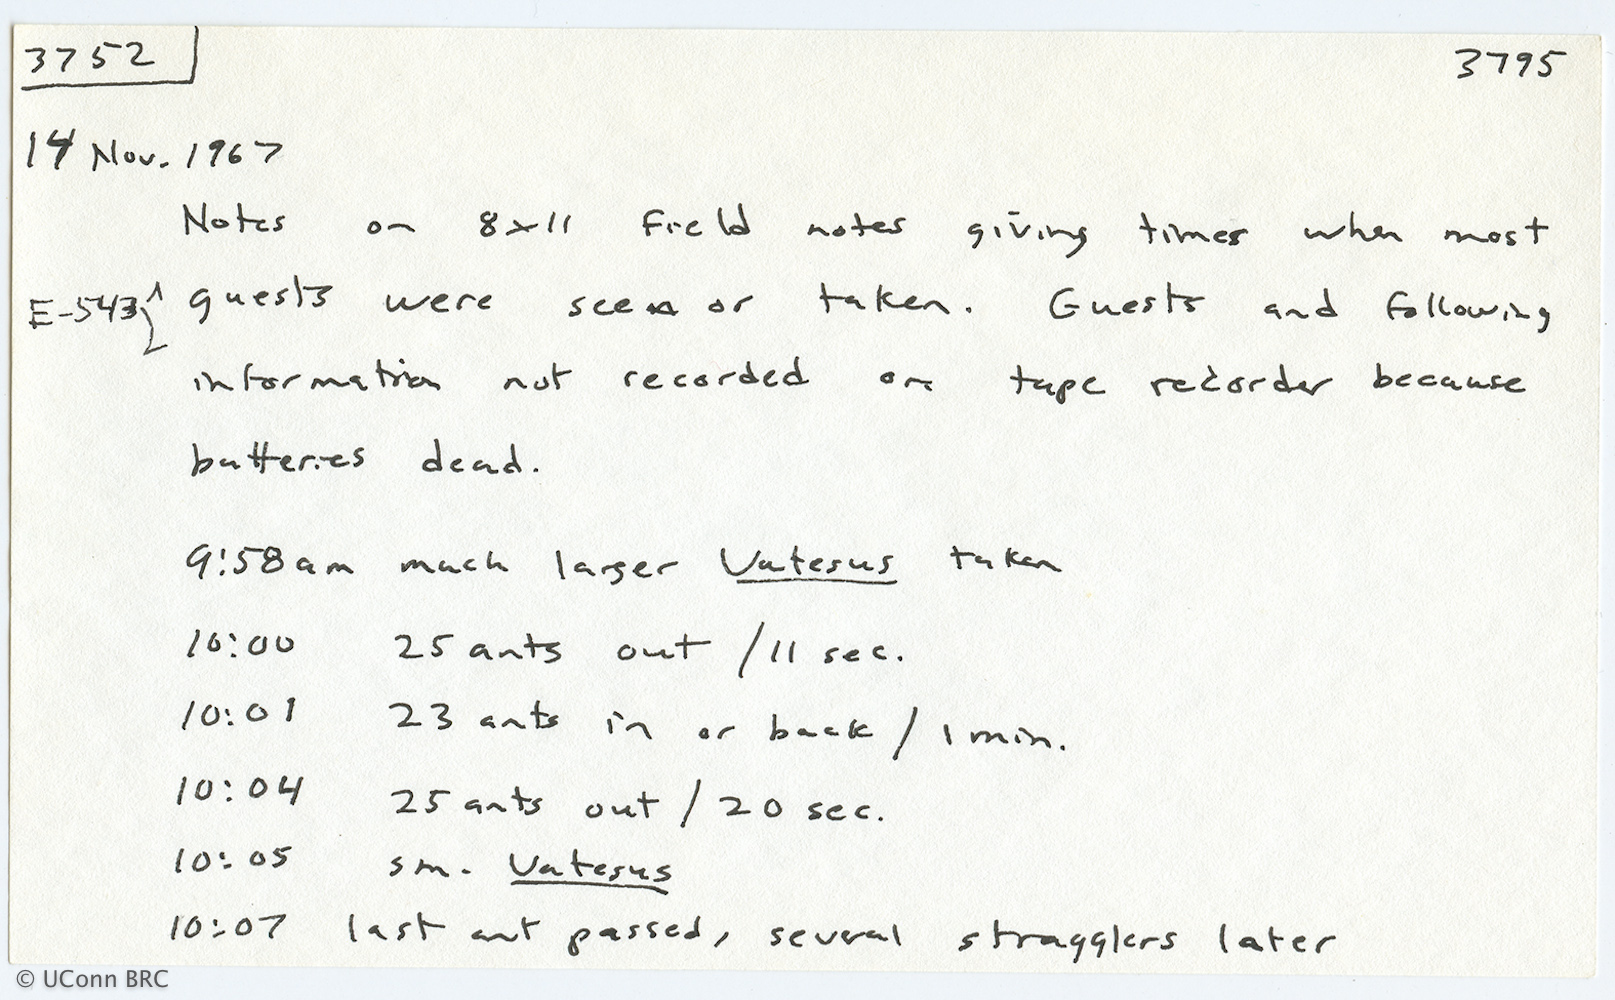 3752
3795
14 Nov. 1967
Notes on 8x11 field notes giving times when most
E-543 guests were seen or taken. Guests and following
information not recorded on tape recorder because
batteries dead.
9:58am much larger Vatesus taken
10:00 25 ants out /11 sec.
10:01 23 ants in or back / 1 min.
10:04 25 ants out / 20 sec.
10:05 sm. Vatesus
10:07 last ant passed, several stragglers later
© UConn BRC